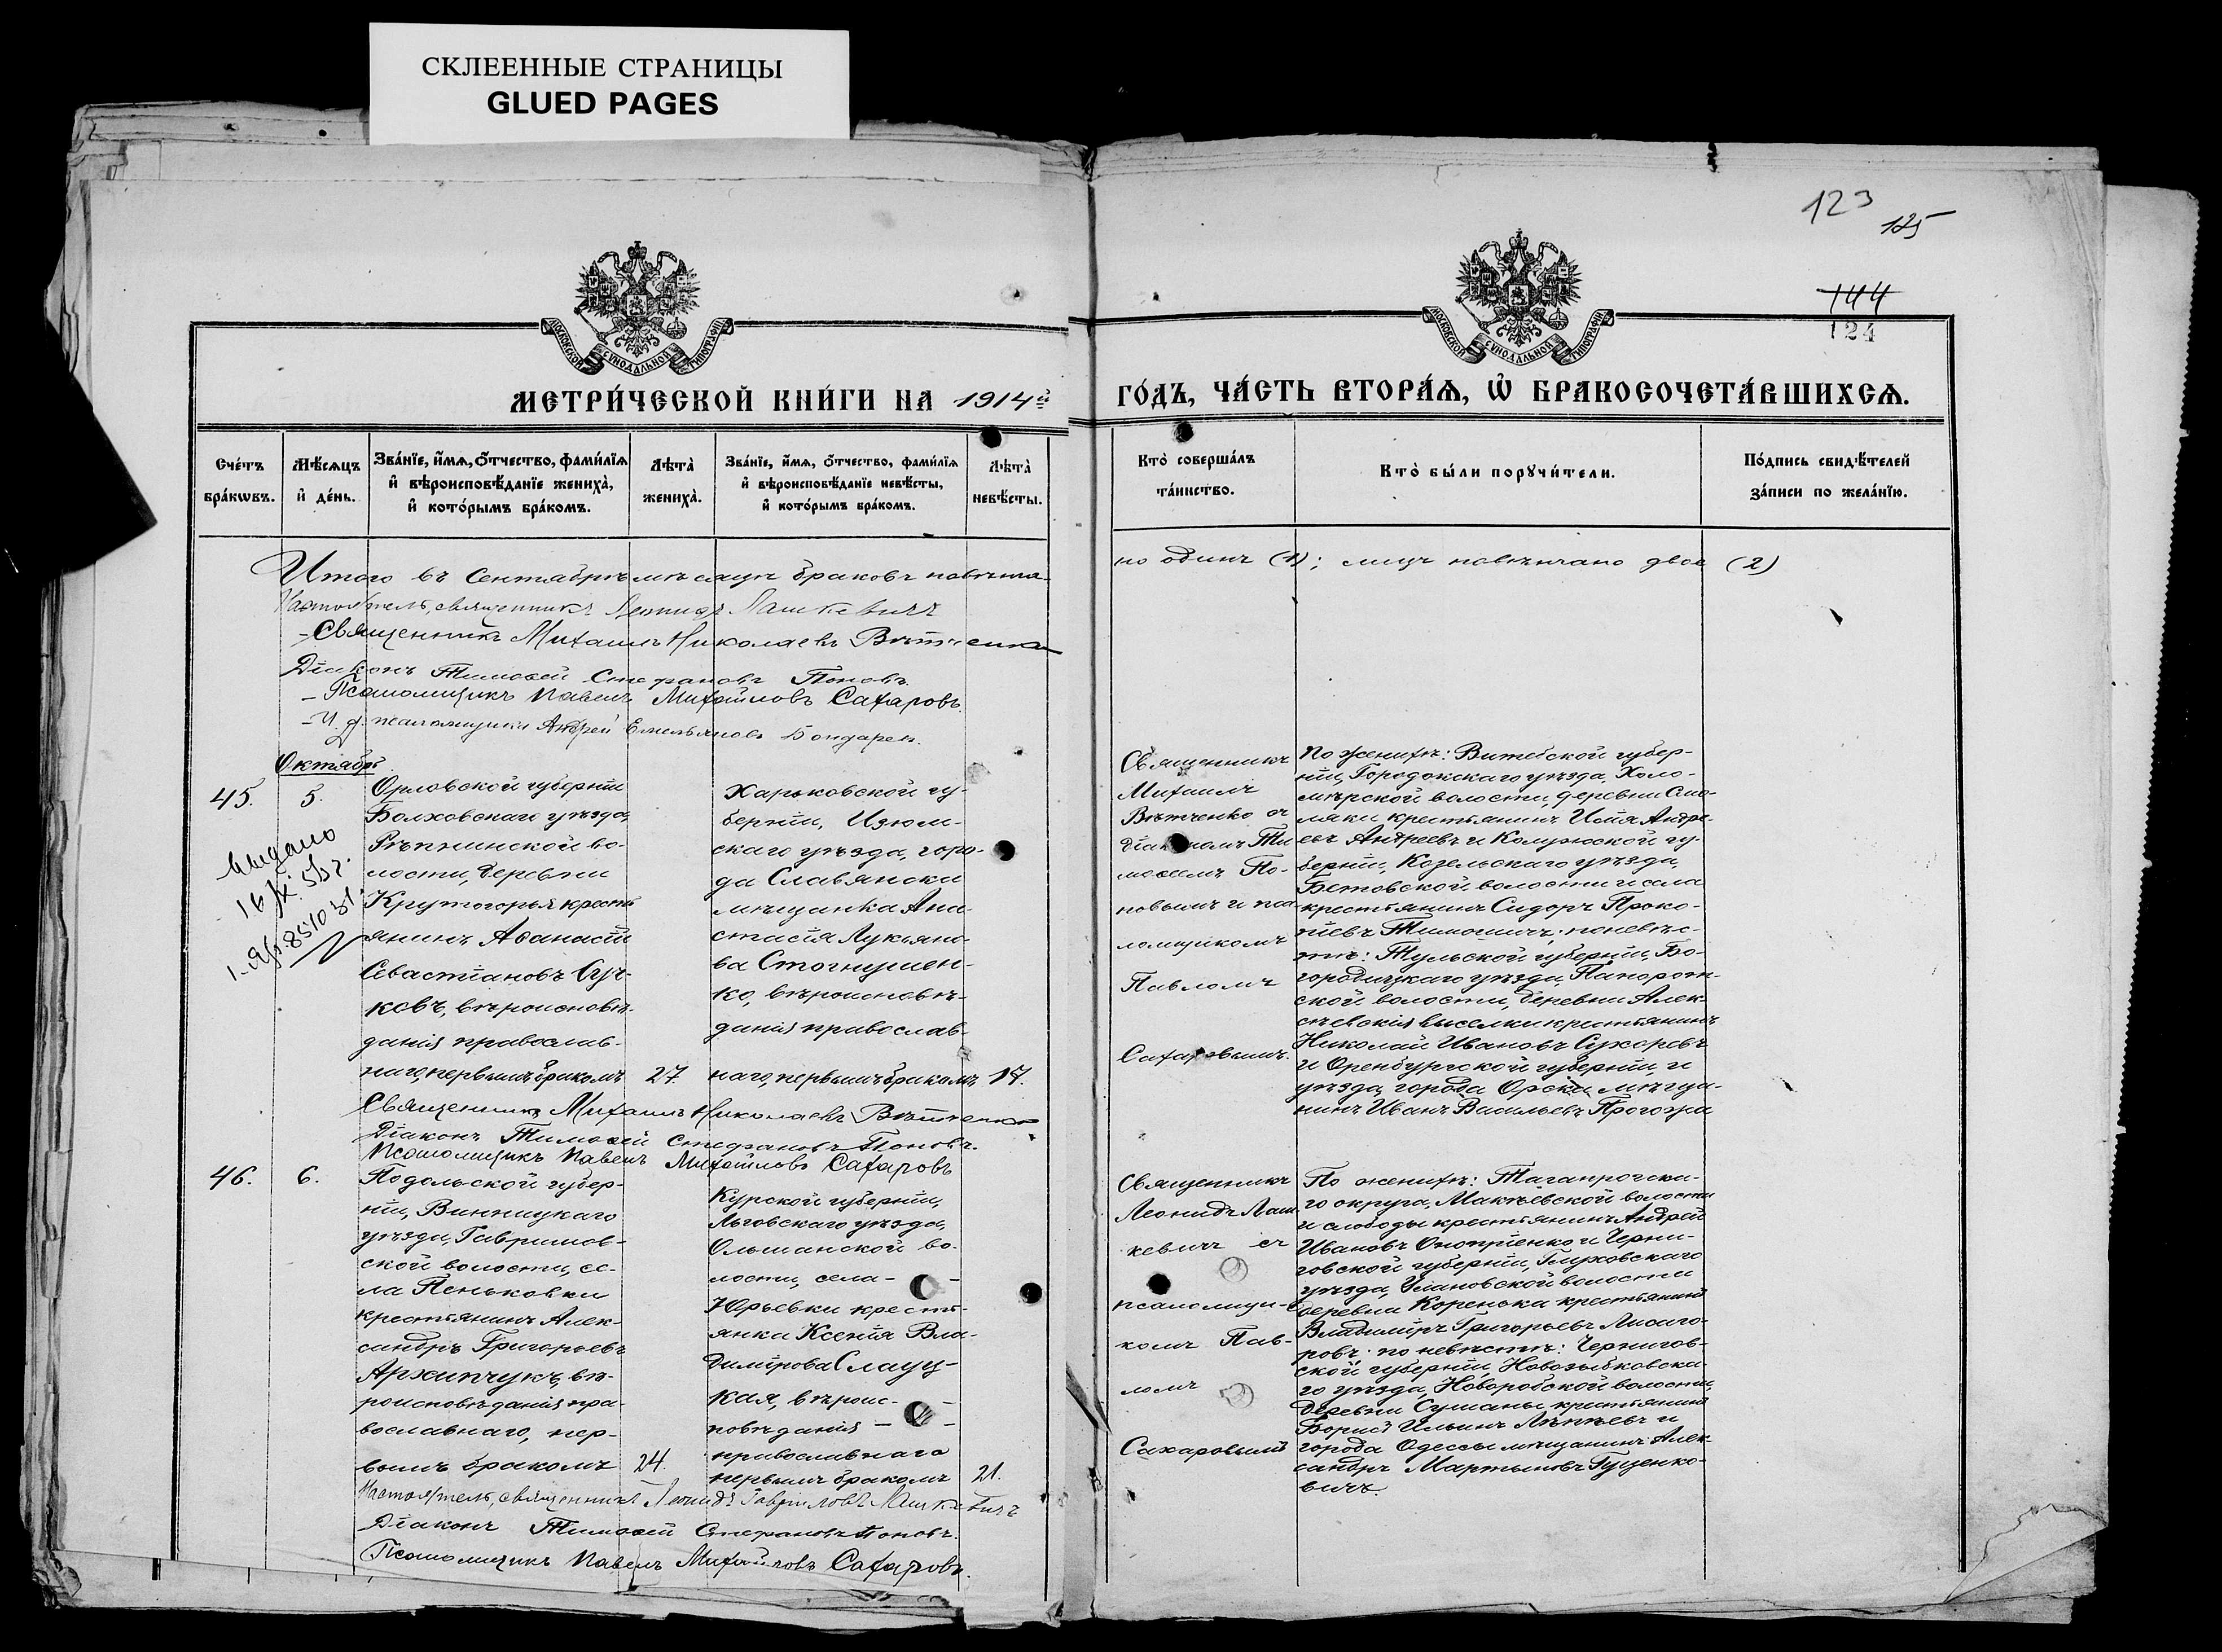 СКЛЕЕННЫЕ СТРАНИЦЫ
GLUED PAGES
123
125
144
124
МОСКОВСКОЙ СѴНОДАЛЬНОЙ ТИПОГРАФІИ
МОСКОВСКОЙ СѴНОДАЛЬНОЙ ТИПОГРАФІИ
МЕТРИ́ЧЕСКОЙ КНИ́ГИ НА 1914й
ГО́ДЪ, ЧА́СТЬ ВТОРА́Ѧ, Ѡ҆ БРАКОСОЧЕТА́ВШИХСѦ.
Сче́тъ
бра́кѡвъ.
Мѣ́сѧцъ
и҆ де́нь.
Зва́нїе, и҆́мѧ, ѻ҆́тчество, фами́лїѧ
и҆ вѣроисповѣ́данїе жениха̀,
и҆ кото́рымъ бра́комъ.
Лѣта̀
жениха̀.
Зва́нїе, и҆́мѧ, ѻ҆́тчество, фами́лїѧ
и҆ вѣроисповѣ́данїе невѣ́сты,
и҆ кото́рымъ бра́комъ.
Лѣта̀
невѣ́сты.
Кто̀ соверша́лъ
та́инство.
Кто̀ бы́ли порꙋчи́тели.
По́дпись свидѣ́телей
за́писи по жела́нїю.
Итого въ Сентябрѣ мѣсяцѣ браковъ повѣнча-
но одинъ (1); лицъ повѣнчано двое (2)
Настоятель, священникъ Леонидъ Лашкевичъ
Священникъ Михаилъ Николаевъ Вѣтченко
Діаконъ Тимоѳей Стефановъ Поповъ.
Псаломщикъ Павелъ Михайловъ Сахаровъ.
И. д. псаломщика Андрей Емельяновъ Бондарев.
Октябрь
45.
5.
выдано
Орловской губерніи
Болховскаго уѣзда,
Рѣпнинской во-
лости, деревни
Крутогорья кресть
янинъ Аѳанасій
Севастіановъ Суч-
ковъ, вѣроисповѣ-
данія православ-
наго, первымъ бракомъ
27.
Харьковской гу-
берніи, Изюм-
скаго уѣзда, горо-
да Славянска
мѣщанка Ана-
стасія Лукьяно-
ва Стогнушен-
ко, вѣроисповѣ-
данія православ-
наго, первымъ бракомъ
17.
Священникъ
Михаилъ
Вѣтченко съ
діакономъ Ти-
моѳеемъ По-
повымъ и пса-
ломщикомъ
Павломъ
Сахаровымъ.
По женихѣ: Витебской губер-
ніи, Городокскаго уѣзда, Холо-
мѣрской волости, деревни Смо-
ляки крестьянинъ Илія Андре-
евъ Андреевъ и Калужской гу-
берніи, Козельскаго уѣзда,
Бетовской волости и села
крестьянинъ Сидоръ Проко-
піевъ Тимошинъ; по невѣс-
тѣ: Тульской губерніи, Бо-
городицкаго уѣзда, Папорот-
ской волости, деревни Алек-
сѣевскія выселки крестьянинъ
Николай Ивановъ Сухоревъ
и Оренбургской губерніи, и
уѣзда, города Орска мѣща-
нинъ Иванъ Васильевъ
Священникъ Михаилъ Николаевъ Вѣтченко
Діаконъ Тимоѳей Стефановъ Поповъ.
Псаломщикъ Павелъ Михайловъ Сахаровъ
46.
6.
Подольской губер-
ніи, Винницкаго
уѣзда, Гавришов-
ской волости, се-
ла Пеньковки
крестьянинъ Алек-
сандръ Григорьевъ
Архипчукъ, вѣ-
роисповѣданія пра-
вославнаго, пер-
вымъ бракомъ
24.
Курской губерніи,
Льговскаго уѣзда,
Ольшанской во-
лости, села -
Юрьевки кресть-
янка Ксенія Вла-
димірова Слауц-
кая, вѣроис-
повѣданія -
православнаго
первымъ бракомъ
21.
Священникъ
Леонидъ Лаш-
кевичъ съ
псаломщи-
комъ Пав-
ломъ
Сахаровымъ
По женихѣ: Таганрогска-
го округа, Макѣевской волости
и слободы крестьянинъ Андрей
Ивановъ Оноприенко и Черни-
говской губерніи, Глуховскаго
уѣзда, Улановской волости
деревни Коренька крестьянинъ
Владиміръ Григорьевъ Лисаго-
ровъ; по невѣстѣ: Чернигов-
ской губерніи, Новозыбковска-
го уѣзда, Новоробской волости,
деревни Сушаны крестьянинъ
Борисъ Ильинъ Лѣпѣевъ и
города Одессы мѣщанинъ Алек-
сандръ Мартыновъ Гуценко-
вичъ.
Настоятель, священникъ Леонидъ Гавріиловъ Лашкевичъ
Діаконъ Тимоѳей Стефановъ Поповъ.
Псаломщикъ Павелъ Михайловъ Сахаровъ.